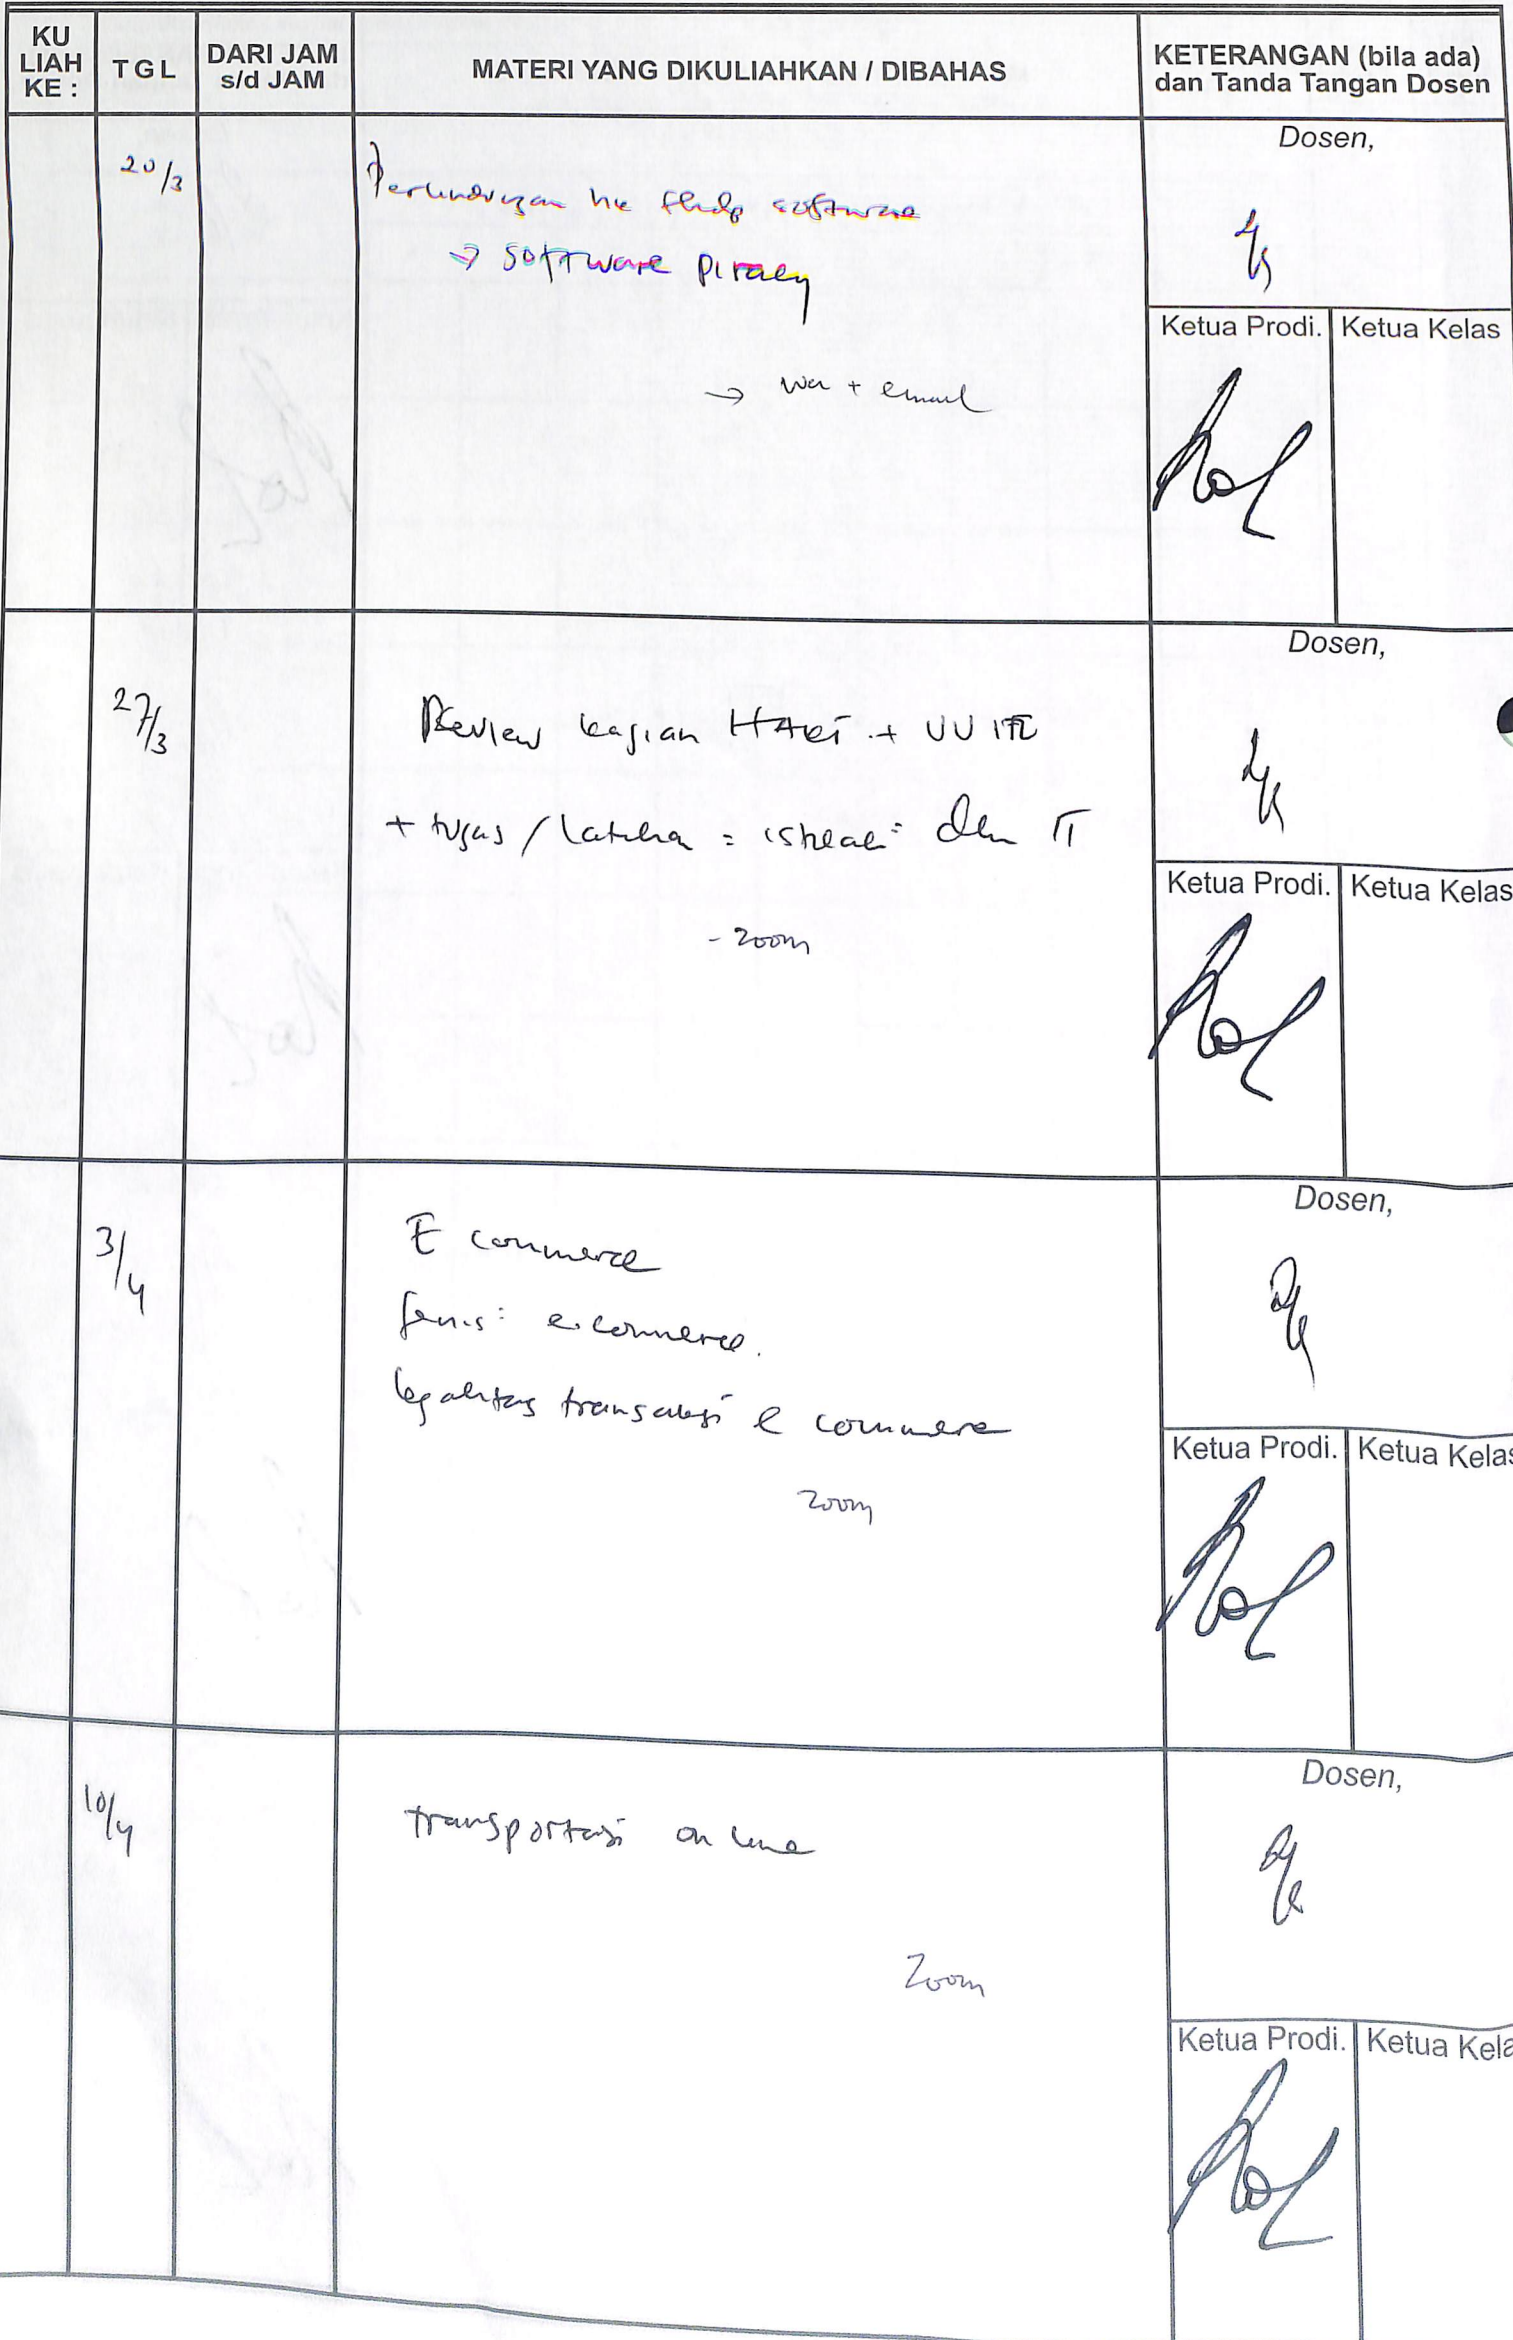 KU LIAH KE :
TGL
DARI JAM s/d JAM
MATERI YANG DIKULIAHKAN / DIBAHAS
KETERANGAN (bila ada) dan Tanda Tangan Dosen
20/3
Perlindungan software
→ software piracy
→ wa + email
Dosen,
Ketua Prodi.
Ketua Kelas
27/3
Review kajian HAKI + UU ITE
+ tugas / latihan = TI
- zoom
Dosen,
Ketua Prodi.
Ketua Kelas
3/4
E commerce
Jenis: e.commerce.
legalitas transaksi e commerce
zoom
Dosen,
Ketua Prodi.
Ketua Kelas
10/4
transportasi on line
Zoom
Dosen,
Ketua Prodi.
Ketua Kela